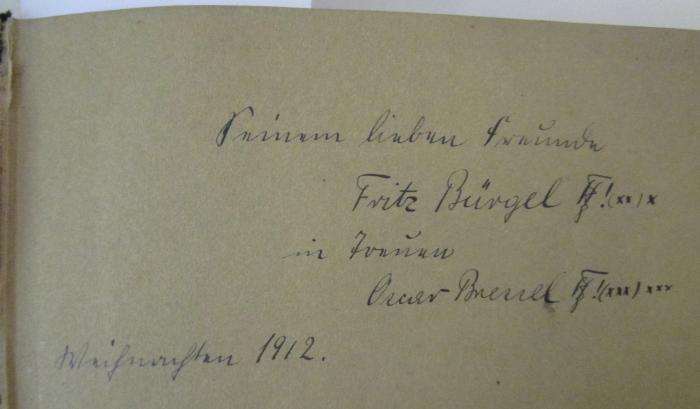 Seinem lieben Freunde
Fritz Bürgel ! (xx) x
in Treuen
Oscar ! (xxx) xxx
Weihnachten 1912.